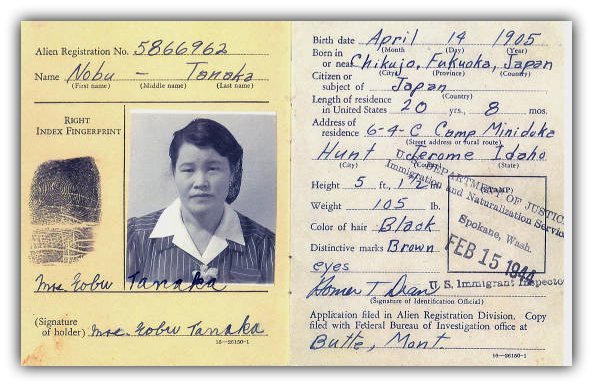 Alien Registration No. 5866962
Name Nobu — Tanaka
(First name) (Middle name) (Last name)
RIGHT
INDEX FINGERPRINT
Mrs. Nobu Tanaka
(Signature
of holder) Mrs. Nobu Tanaka
16—26150-1
Birth date April 14 1905
(Month (Day) (Year)
Born in
or near Chikujo, Fukuoka, Japan
(City) (Province) (Country)
Citizen or
subject of Japan
(Country)
Length of residence
in United States 20 yrs., 8 mos.
Address of
residence 6-4-C Camp Minidoka
(Street address or rural route)
Hunt Jerome Idaho
(City) (County) (State)
Height 5 ft., 1½ in
Weight 105 lb.
Color of hair Black
Distinctive marks Brown
eyes
(STAMP)
U.S. DEPARTMENT OF JUSTICE
Immigration and Naturalization Service
Spokane, Wash.
FEB 15 1944
U. S. Immigrant Inspector
Homer T Dean
(Signature of Identification Official)
Application filed in Alien Registration Division. Copy
filed with Federal Bureau of Investigation office at
Butte, Mont.
16—26150-1